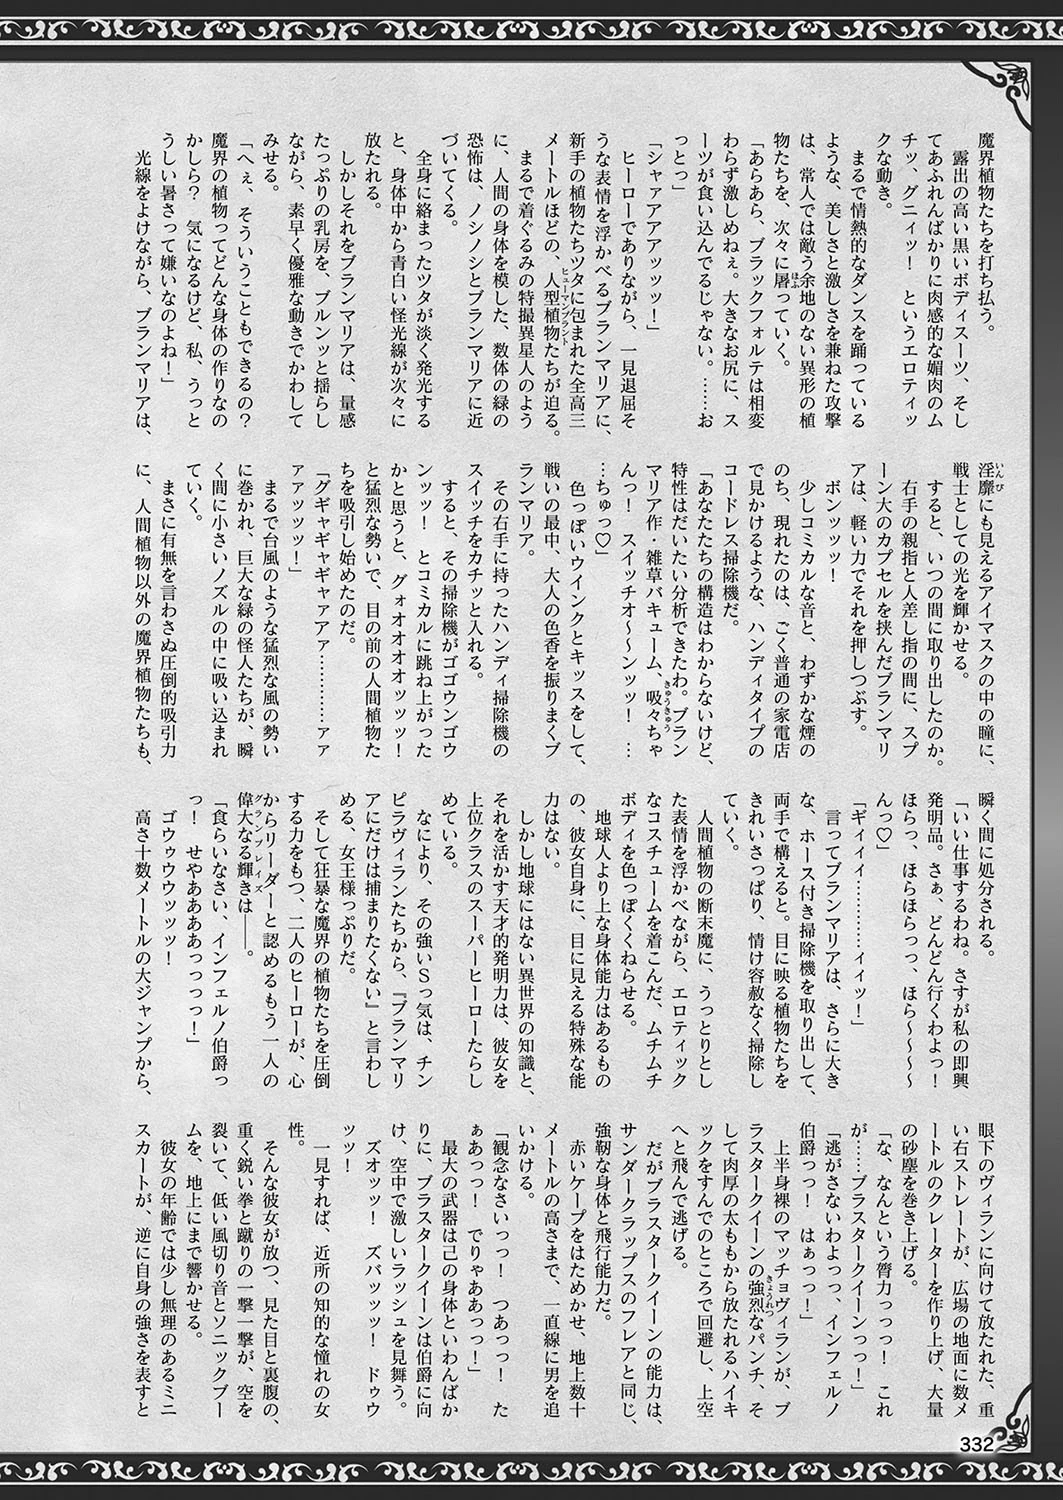 魔界植物たちを打ち払う。
　露出の高い黒いボディスーツ、そし
てあふれんばかりに肉感的な媚肉のム
チッ、グニィッ！　というエロティッ
クな動き。
　まるで情熱的なダンスを踊っている
ような、美しさと激しさを兼ねた攻撃
は、常人では敵う余地のない異形の植
物たちを、次々に屠っていく。
「あらあら、ブラックフォルテは相変
わらず激しめねぇ。大きなお尻に、ス
ーツが食い込んでるじゃない。……お
っとっ」
「シャアアアアッッッ！」
　ヒーローでありながら、一見退屈そ
うな表情を浮かべるブランマリアに、
新手の植物たちツタに包まれた全高三
メートルほどの、人型植物たちが迫る。
　まるで着ぐるみの特撮異星人のよう
に、人間の身体を模した、数体の緑の
恐怖は、ノシノシとブランマリアに近
づいてくる。
　全身に絡まったツタが淡く発光する
と、身体中から青白い怪光線が次々に
放たれる。
　しかしそれをブランマリアは、量感
たっぷりの乳房を、ブルンッと揺らし
ながら、素早く優雅な動きでかわして
みせる。
「へぇ、そういうこともできるの？
魔界の植物ってどんな身体の作りなの
かしら？　気になるけど、私、うっと
うしい暑さって嫌いなのよね！」
　光線をよけながら、ブランマリアは、
淫靡にも見えるアイマスクの中の瞳に、
戦士としての光を輝かせる。
　すると、いつの間に取り出したのか。
　右手の親指と人差し指の間に、スプ
ーン大のカプセルを挟んだブランマリ
アは、軽い力でそれを押しつぶす。
　ボンッッッ！
　少しコミカルな音と、わずかな煙の
のち、現れたのは、ごく普通の家電店
で見かけるような、ハンディタイプの
コードレス掃除機だ。
「あなたたちの構造はわからないけど、
特性はだいたい分析できたわ。ブラン
マリア作・雑草バキューム、吸々ちゃ
んっ！　スイッチオ～～ンッッ！　…
…ちゅっ♡」
　色っぽいウインクとキッスをして、
戦いの最中、大人の色香を振りまくブ
ランマリア。
　その右手に持ったハンディ掃除機の
スイッチをカチッと入れる。
　すると、その掃除機がゴゴウンゴウ
ンッッ！　とコミカルに跳ね上がった
かと思うと、グォオオオオッッッ！
と猛烈な勢いで、目の前の人間植物た
ちを吸引し始めたのだ。
「グギャギャギャアアァ…………ァァ
ァアッッッ！」
　まるで台風のような猛烈な風の勢い
に巻かれ、巨大な緑の怪人たちが、瞬
く間に小さいノズルの中に吸い込まれ
ていく。
　まさに有無を言わさぬ圧倒的吸引力
に、人間植物以外の魔界植物たちも、
瞬く間に処分される。
「いい仕事するわね。さすが私の即興
発明品。さぁ、どんどん行くわよっ！
ほらっ、ほらほらっっ、ほら～～～～
んっ♡」
「ギィイィ…………イィッ！」
　言ってブランマリアは、さらに大き
な、ホース付き掃除機を取り出して、
両手で構えると。目に映る植物たちを
きれいさっぱり、情け容赦なく掃除し
ていく。
　人間植物の断末魔に、うっとりとし
た表情を浮かべながら、エロティック
なコスチュームを着こんだ、ムチムチ
ボディを色っぽくくねらせる。
　地球人より上な身体能力はあるもの
の、彼女自身に、目に見える特殊な能
力はない。
　しかし地球にはない異世界の知識と、
それを活かす天才的発明力は、彼女を
上位クラスのスーパーヒーローたらし
めている。
　なにより、その強いＳっ気は、チン
ピラヴィランたちから、『ブランマリ
アにだけは捕まりたくない』と言わし
める、女王様っぷりだ。
　そして狂暴な魔界の植物たちを圧倒
する力をもつ、二人のヒーローが、心
からリーダーと認めるもう一人の
偉大なる輝きは――。
「食らいなさい、インフェルノ伯爵っ
っ！　せやああああっっっっ！」
　ゴウゥウウッッッ！
　高さ十数メートルの大ジャンプから、
眼下のヴィランに向けて放たれた、重
い右ストレートが、広場の地面に数メ
ートルのクレーターを作り上げ、大量
の砂塵を巻き上げる。
「な、なんという膂力っっっ！　これ
が……ブラスタークイーンっっ！」
「逃がさないわよっっ、インフェルノ
伯爵っっ！　はぁっっ！」
　上半身裸のマッチョヴィランが、ブ
ラスタークイーンの強烈なパンチ、そ
して肉厚の太ももから放たれるハイキ
ックをすんでのところで回避し、上空
へと飛んで逃げる。
　だがブラスタークイーンの能力は、
サンダークラップスのフレアと同じ、
強靭な身体と飛行能力だ。
　赤いケープをはためかせ、地上数十
メートルの高さまで、一直線に男を追
いかける。
「観念なさいっっ！　つあっっ！　た
ぁあっっ！　でりゃああっっ！」
　最大の武器は己の身体といわんばか
りに、ブラスタークイーンは伯爵に向
け、空中で激しいラッシュを見舞う。
　ズオッッ！　ズバッッッ！　ドゥウ
ッッ！
　一見すれば、近所の知的な憧れの女
性。
　そんな彼女が放つ、見た目と裏腹の、
重く鋭い拳と蹴りの一撃一撃が、空を
裂いて、低い風切り音とソニックブー
ムを、地上にまで響かせる。
　彼女の年齢では少し無理のあるミニ
スカートが、逆に自身の強さを表すと
332